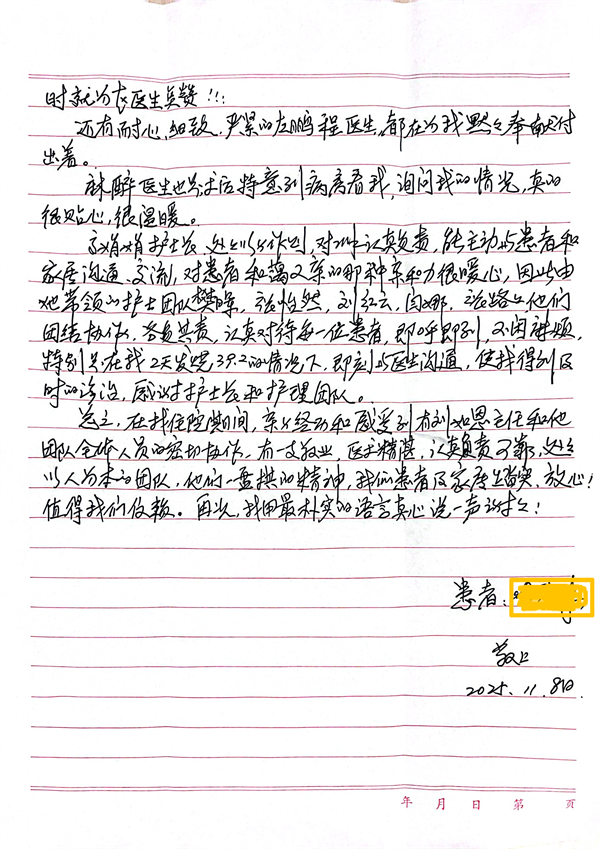 时就为左医生点赞!!!
还有耐心、细致、严紧的左鹏程医生,都在为我默々奉献付
出着。
林醉医生也是术后特意到病房看我,询问我的情况,真的
很贴心,很温暖。
护士长处处以身作则,对工作认真负责,能主动与患者和
家属沟通、交流,对患者和蔼可亲的那种亲和力很暖心,因此由
她带领的护士团队樊晖、张怡然、刘红云、闫娜、张路々他们
团结协作、各负其责,认真对待每一位患者,即呼即到,不闲麻烦,
特别是在我2天发烧,39.2的情况下,即刻与医生沟通,使我得到及
时的诊治,感谢护士长和护理团队。
总之,在我住院期间,亲身经历和感受到有刘如恩主任和他
团队全体人员的密切协作,有一支敬业、医术精湛、认真负责可靠,处处
以人为本的团队,他们一盘棋的精神,我们患者及家属踏实、放心!
值得我们信赖。再次,我用最朴实的语言真心说一声谢谢!
患者:
敬上
2025.11.8日.
年 月 日 第 页